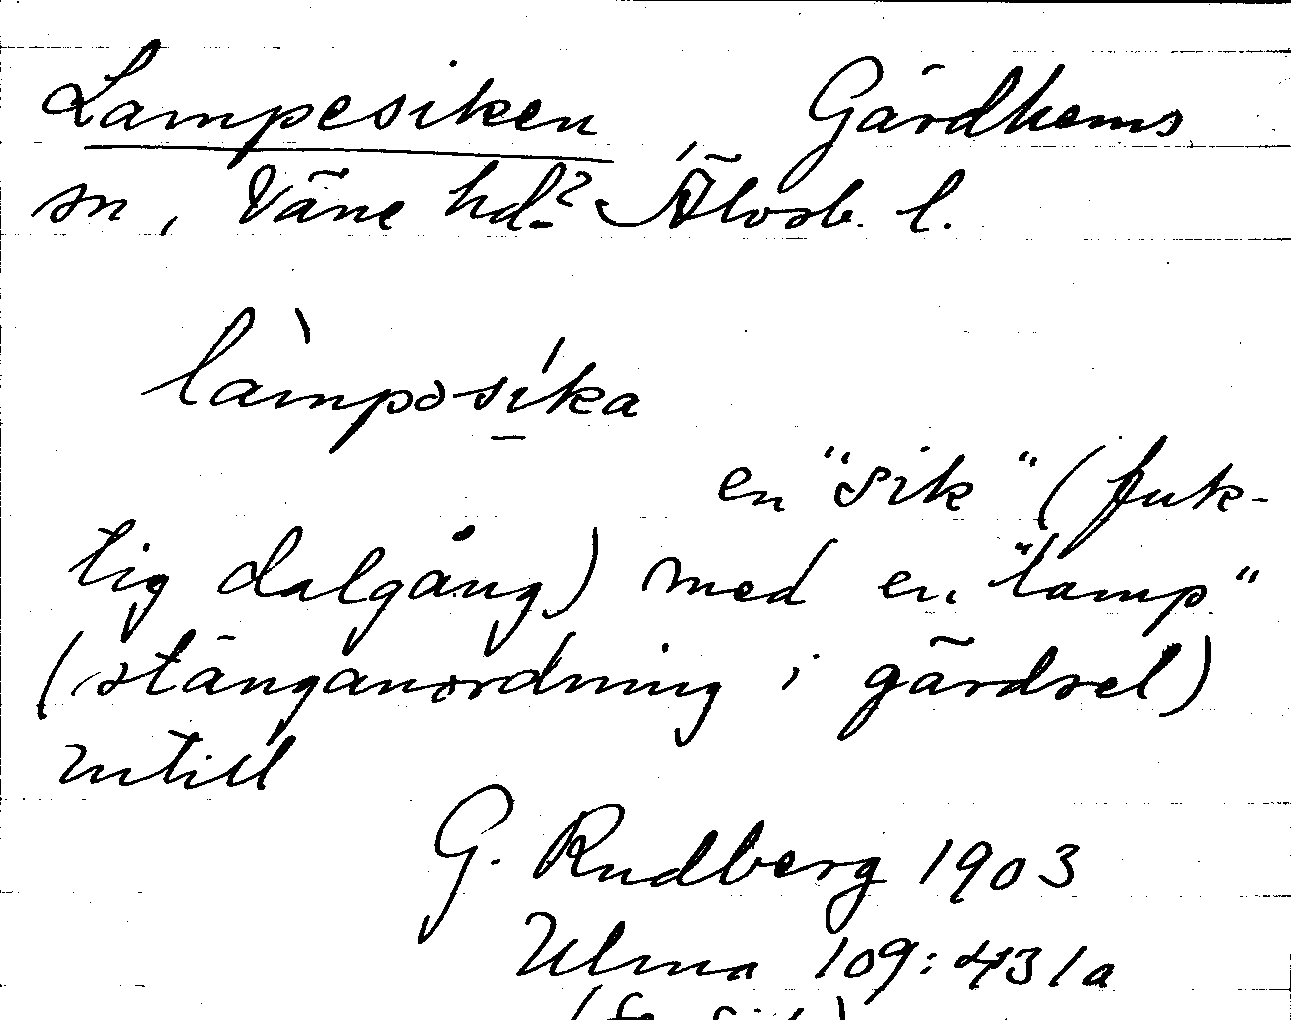 Lampesiken Gärdhems
sn, Väne hd? Älvsb. l.
làmpəsíka
en "sik" (fuk-
tig dalgång) med en "lamp"
(stänganordning i gärdsel)
intill
G. Rudberg 1903
Ulma 109:431a